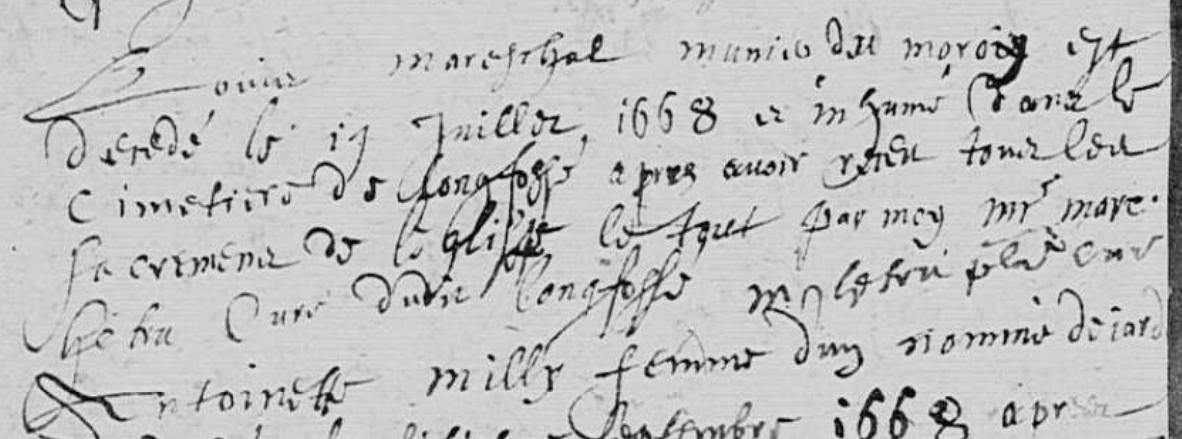 Louis mareschal munier du moroiy est
decedé le 19 Juillet 1668 et inhumé dans le
Cimetiere de longfossé apres avoir receu tous les
sacremens de leglise le tout par moy mre marc
Curé dudit longfosse curé
Antoinette mille femme dun nommé dejard
septembre 1668 apres